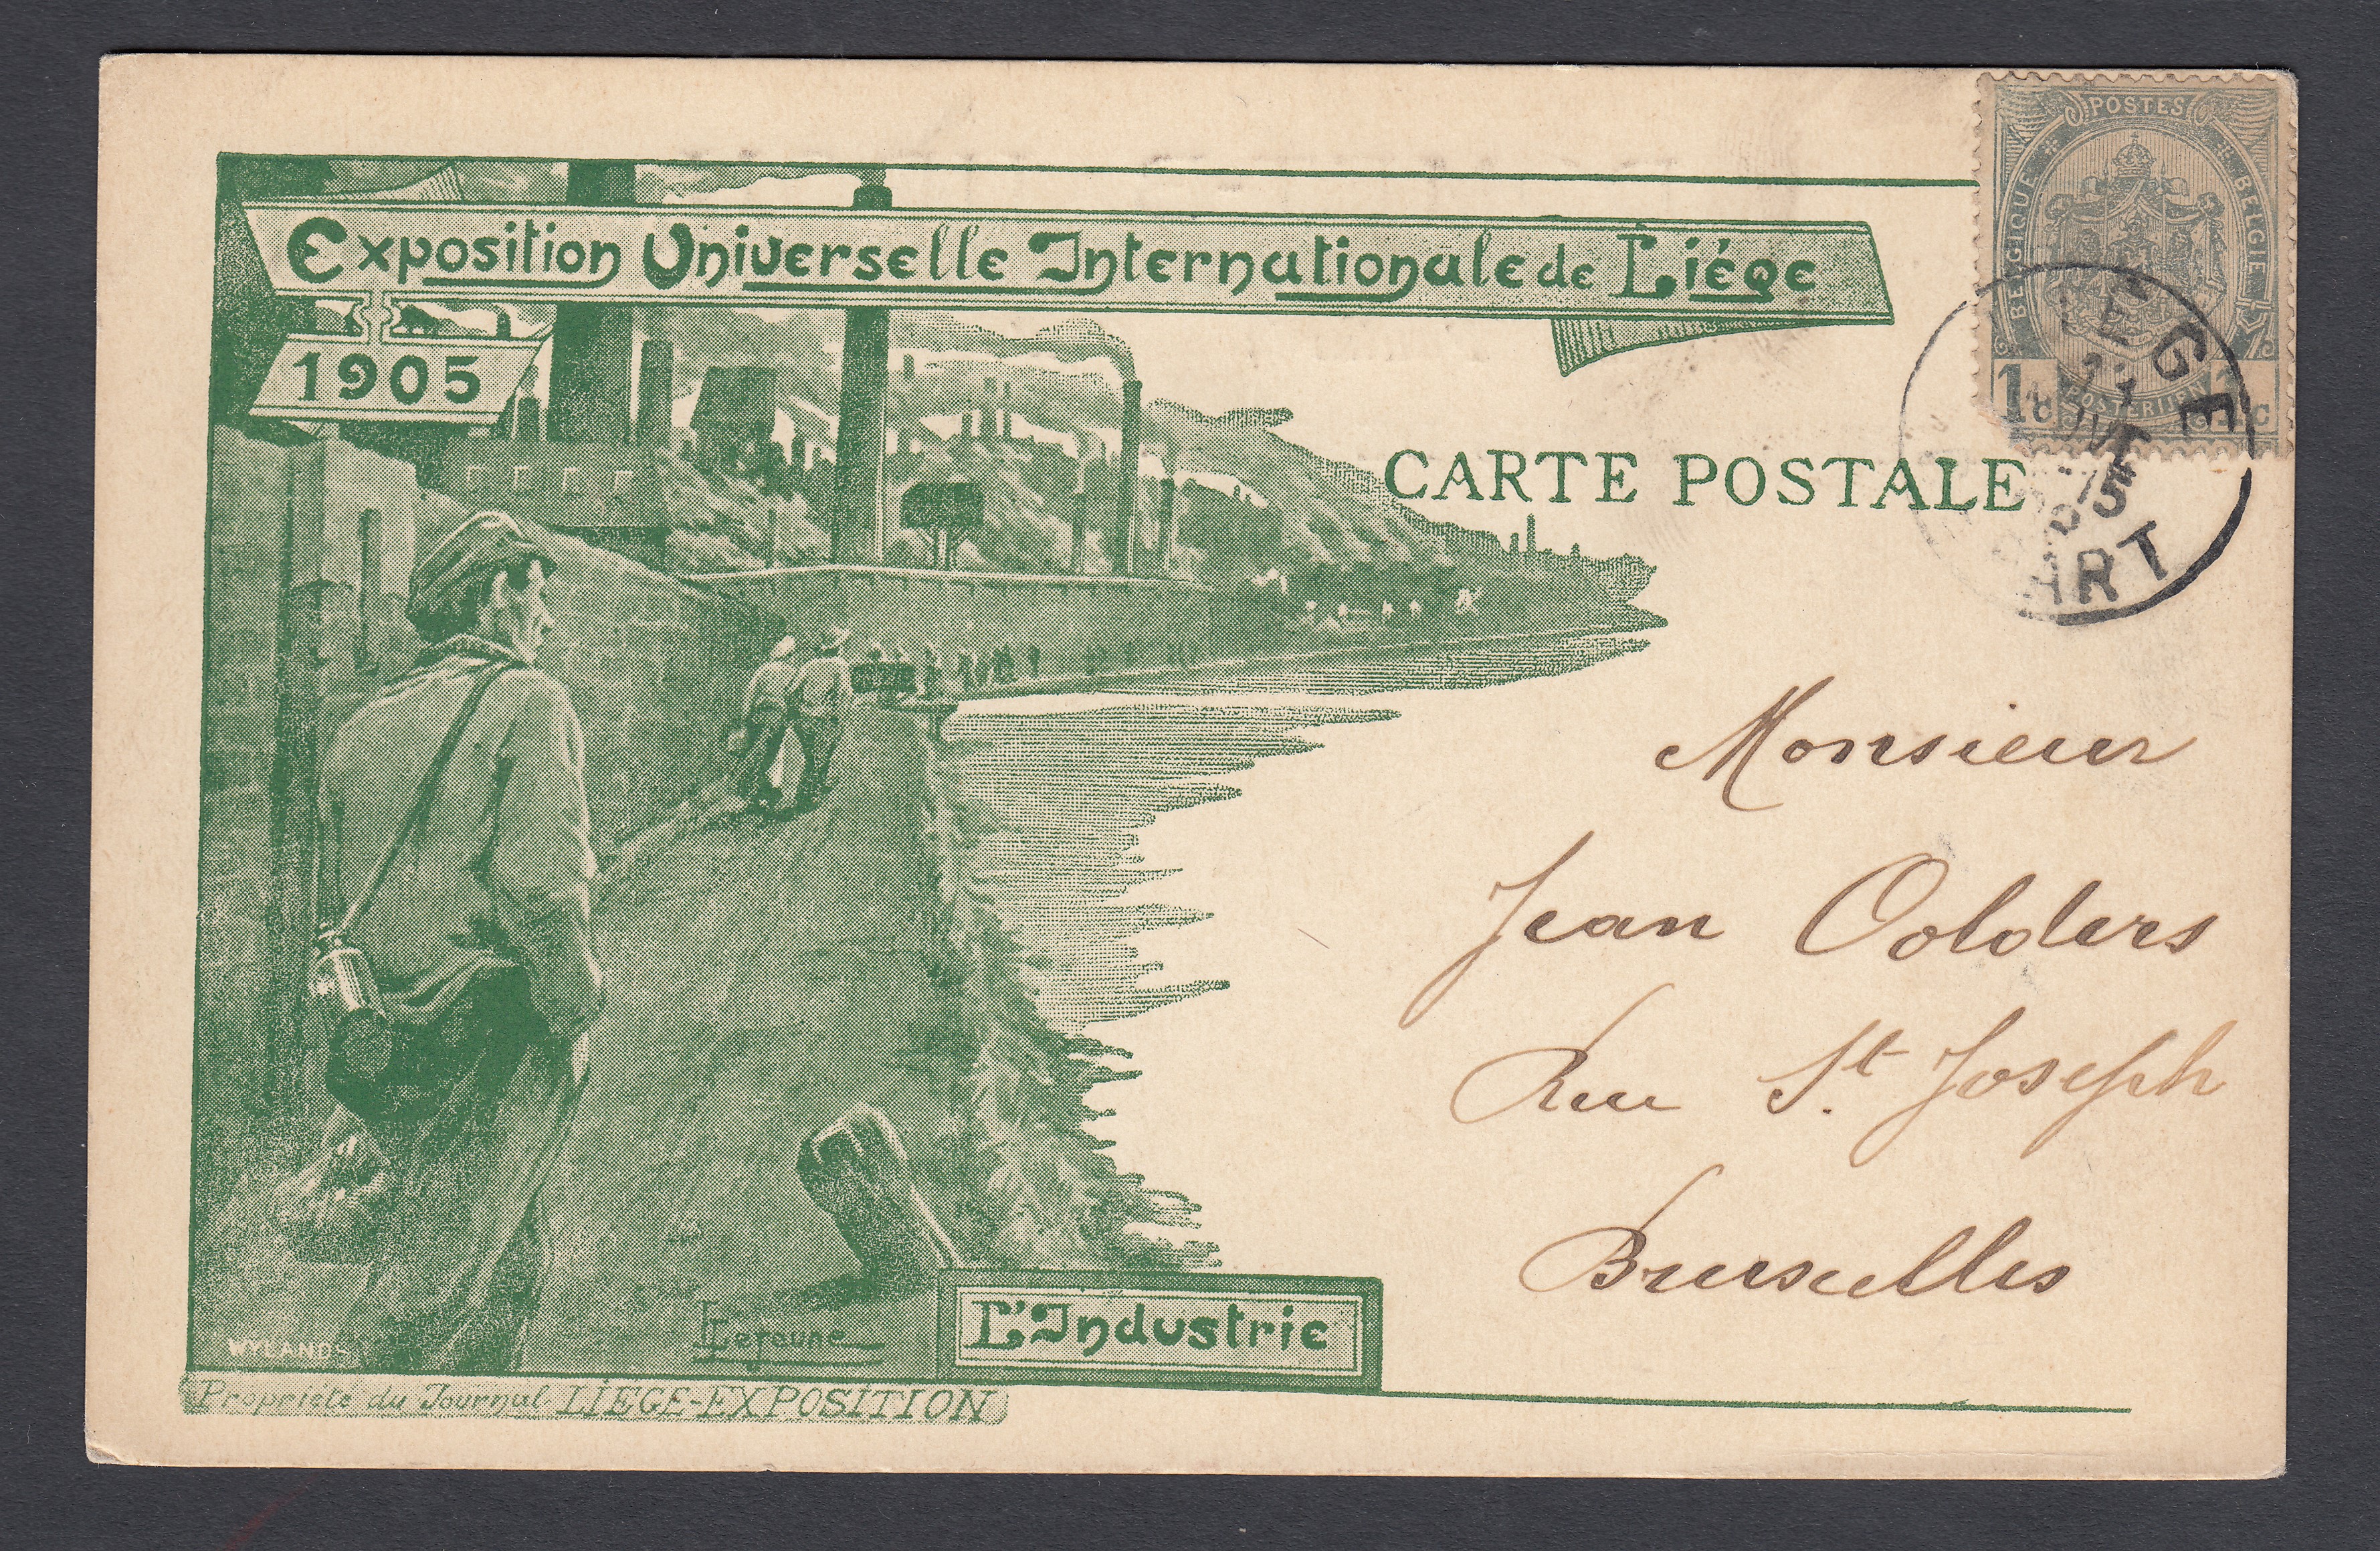 Exposition Universelle Internationale de Liége
1905
POSTES
BELGIQUE
BELGIE
1c
POSTERIJEN
1c
CARTE POSTALE
Monsieur
Jean Oolders
Rue St. Joseph
Bruxelles
WYLANDS
Lejeune
L'Industrie
Propriété du Journal LIÉGE-EXPOSITION